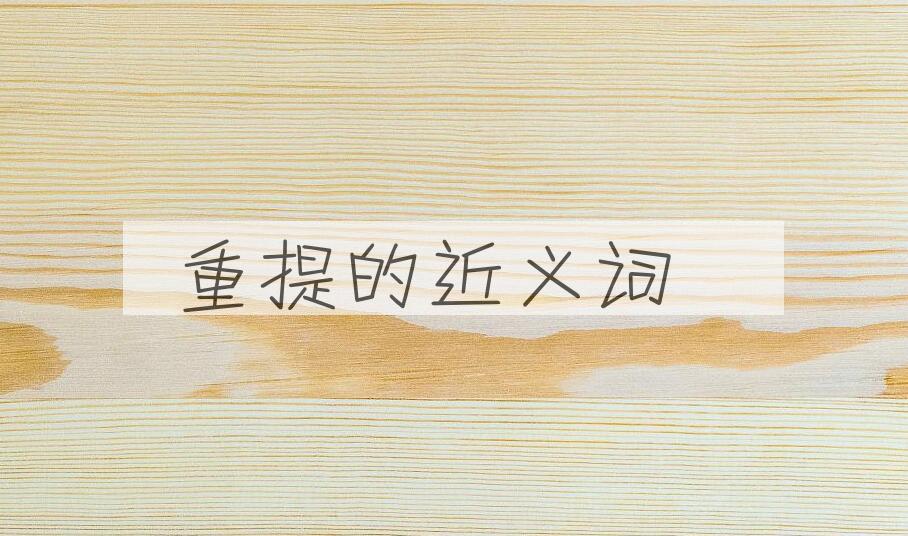 重提的近义词